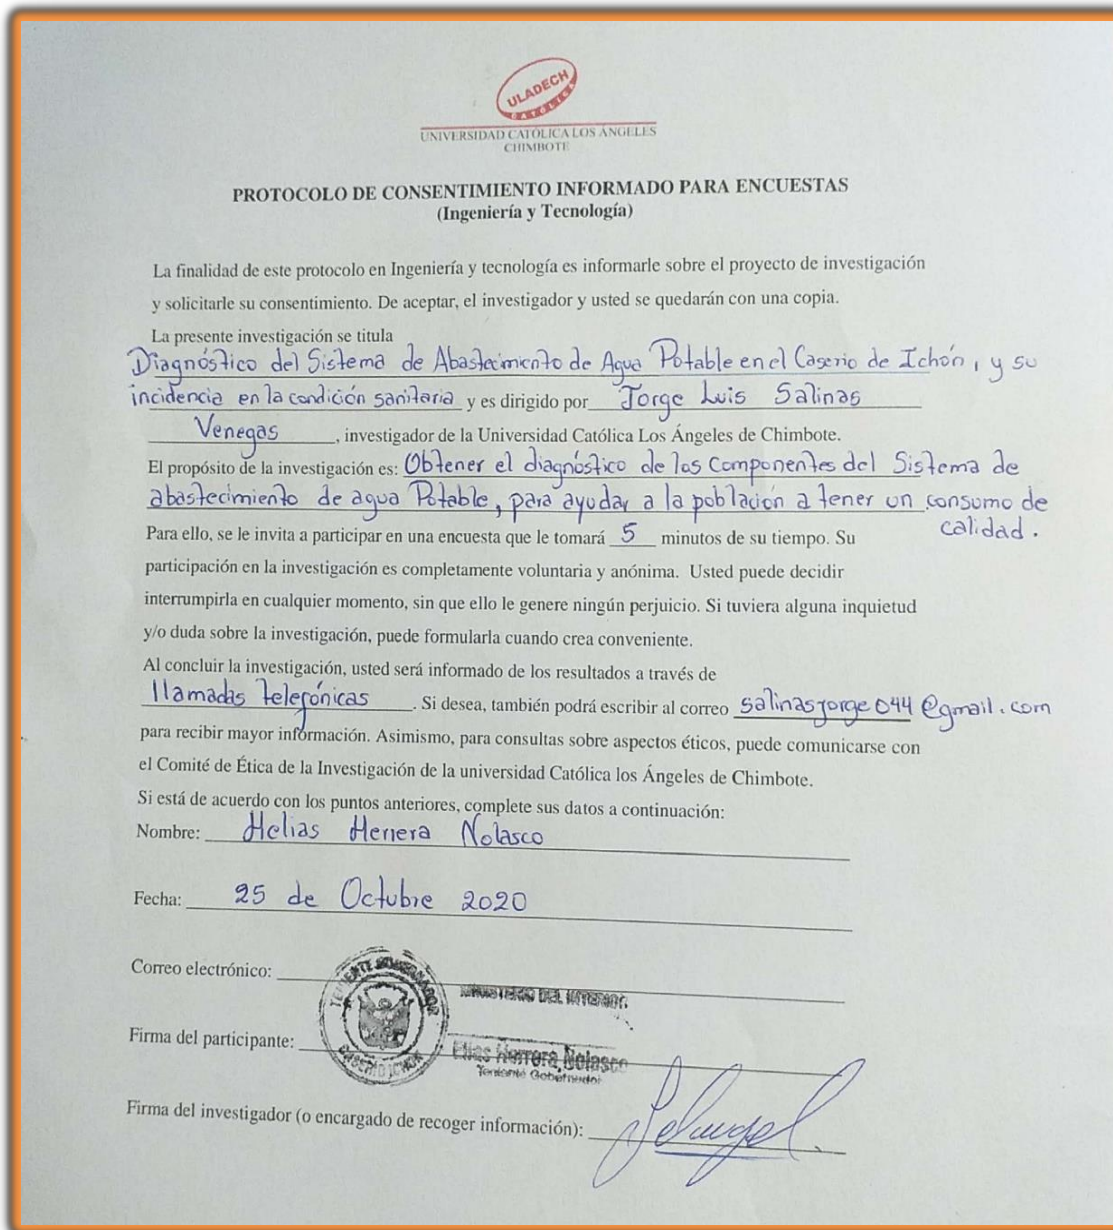 ULADECH
CATÓLICA
UNIVERSIDAD CATÓLICA LOS ÁNGELES
CHIMBOTE
PROTOCOLO DE CONSENTIMIENTO INFORMADO PARA ENCUESTAS
(Ingeniería y Tecnología)
La finalidad de este protocolo en Ingeniería y tecnología es informarle sobre el proyecto de investigación
y solicitarle su consentimiento. De aceptar, el investigador y usted se quedarán con una copia.
La presente investigación se titula
Diagnóstico del Sistema de Abastecimiento de Agua Potable en el Caserio de Ichón, y su
incidencia en la condición sanitaria y es dirigido por Jorge Luis Salinas
Venegas, investigador de la Universidad Católica Los Ángeles de Chimbote.
El propósito de la investigación es: Obtener el diagnóstico de los Componentes del Sistema de
abastecimiento de agua Potable, para ayudar a la población a tener un consumo de
calidad.
Para ello, se le invita a participar en una encuesta que le tomará 5 minutos de su tiempo. Su
participación en la investigación es completamente voluntaria y anónima. Usted puede decidir
interrumpirla en cualquier momento, sin que ello le genere ningún perjuicio. Si tuviera alguna inquietud
y/o duda sobre la investigación, puede formularla cuando crea conveniente.
Al concluir la investigación, usted será informado de los resultados a través de
llamadas telefónicas. Si desea, también podrá escribir al correo salinasjorge044@gmail.com
para recibir mayor información. Asimismo, para consultas sobre aspectos éticos, puede comunicarse con
el Comité de Ética de la Investigación de la universidad Católica los Ángeles de Chimbote.
Si está de acuerdo con los puntos anteriores, complete sus datos a continuación:
Nombre: Helias Herrera Nolasco
Fecha: 25 de Octubre 2020
Correo electrónico:
TENIENTE GOBERNADOR
CASERIO ICHON
MINISTERIO DEL INTERIOR
Firma del participante:
Elias Herrera Nolasco
Teniente Gobernador
Firma del investigador (o encargado de recoger información):